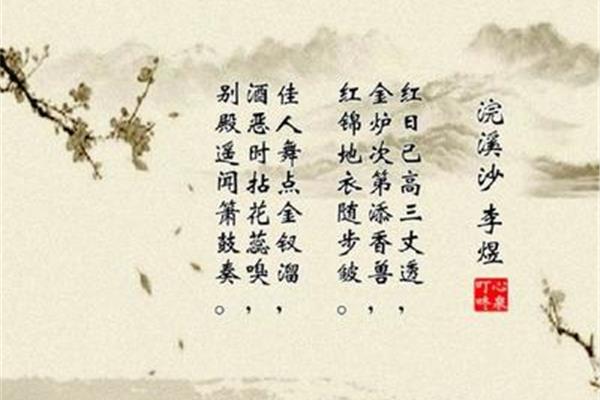 浣溪沙 李煜
心泉
叮咚
红日已高三丈透，
金炉次第添香兽，
红锦地衣随步皱。
佳人舞点金钗溜，
酒恶时拈花蕊嗅，
别殿遥闻箫鼓奏。